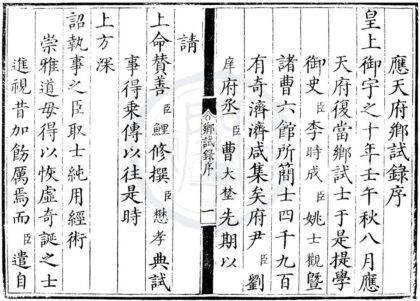 應天府鄉試錄序
皇上御宇之十年壬午秋八月應
天府復當鄉試士于是提學
御史臣李時成臣姚士觀曁
諸曹六館所簡士四千九百
有奇濟濟咸集矣府尹臣劉
庠府丞臣曹大埜先期以
鄉試錄序 一
請
上命贊善臣鯉修撰臣懋孝典試
事得乘傳以往是時
上方深
詔執事之臣取士純用經術
崇雅道毋得以恢虛奇誕之士
進視昔加飭厲焉而臣遣自